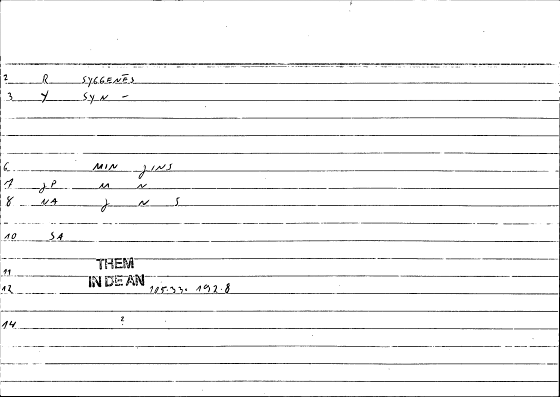 2 R SYGGENĒS
3 Y SYN -
6 MIN JINS
7 JP M N
8 NA J N S
10 SA
THEM
11
IN DE AN
12 105.33. 192.8
14 ?